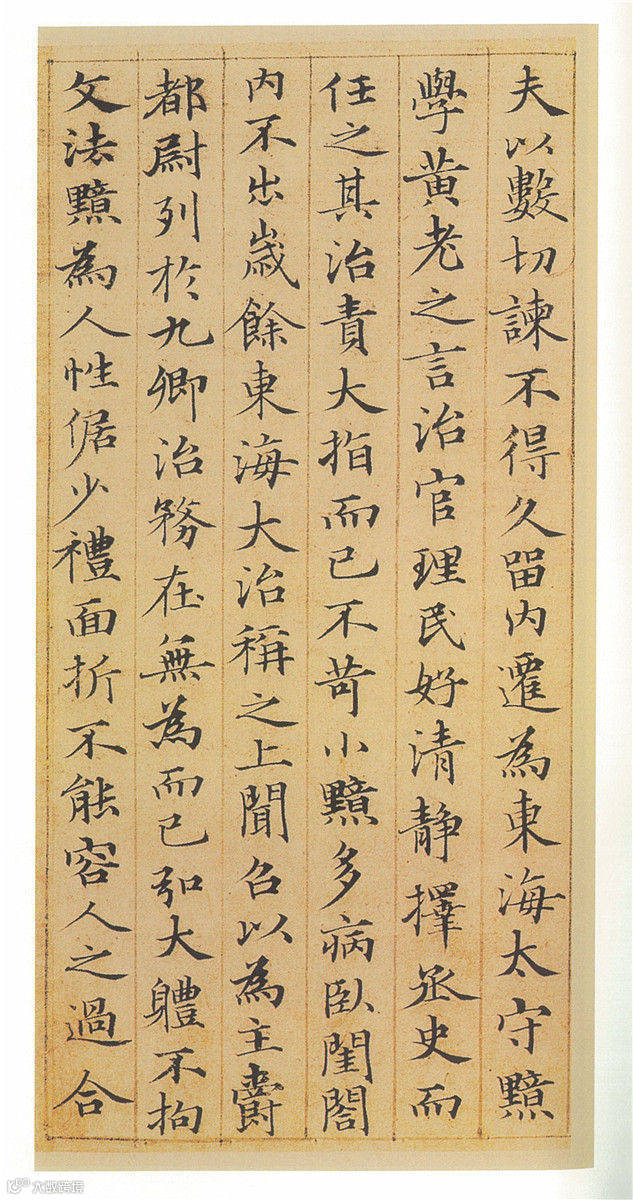 夫以數切諫不得久留内遷為東海太守黯
學黄老之言治官理民好清静擇丞史而
任之其治責大指而已不苛小黯多病臥閨閤
内不出歲餘東海大治稱之上聞召以為主爵
都尉列於九卿治務在無為而已弘大軆不拘
文法黯為人性倨少禮面折不能容人之過合
大数跨境